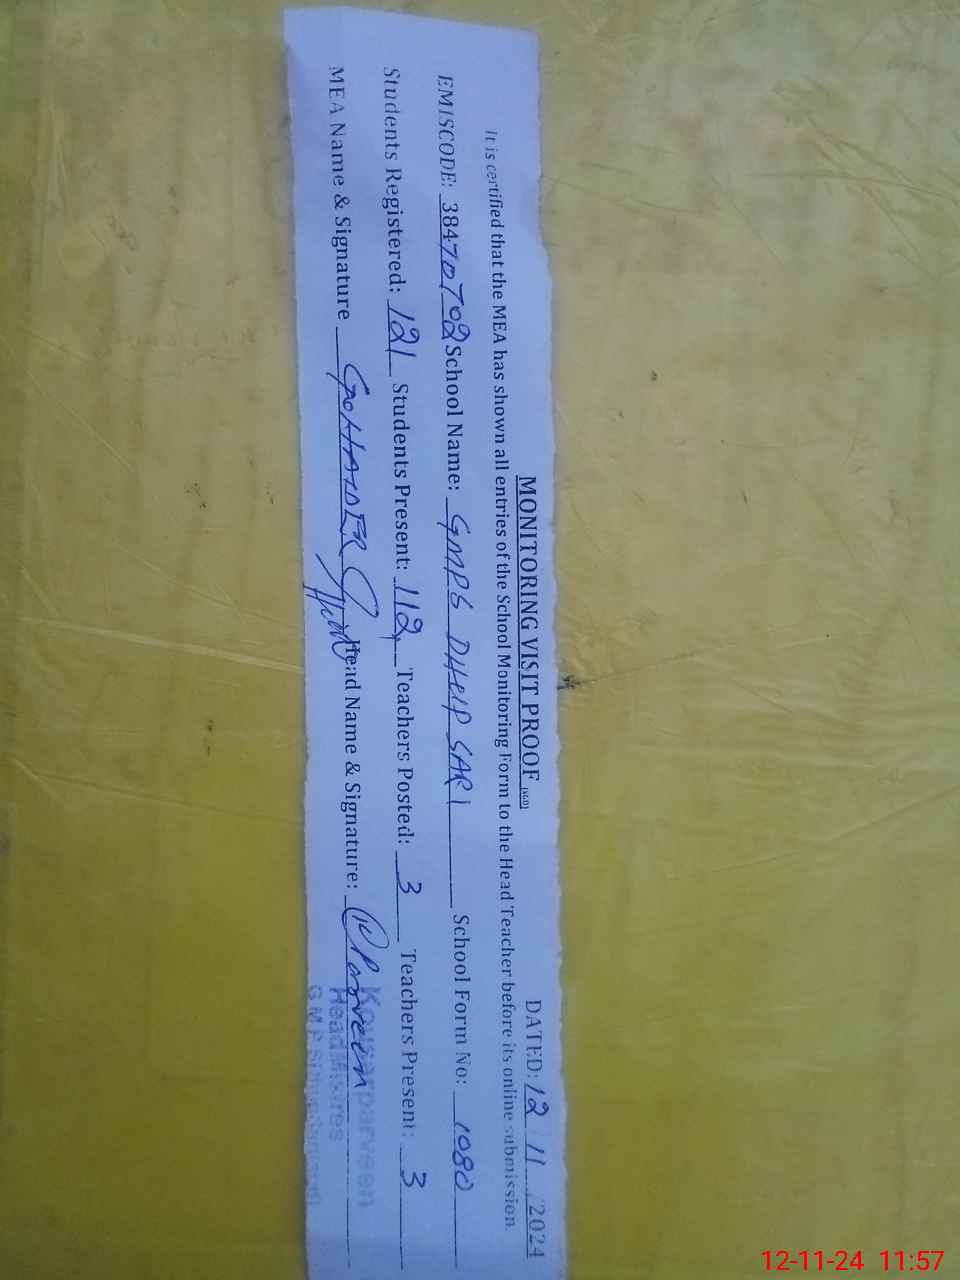 MONITORING VISIT PROOF (SGD) DATED: 12 / 11 / 2024
It is certified that the MEA has shown all entries of the School Monitoring Form to the Head Teacher before its online submission.
EMISCODE: 38470702 School Name: GMPS DHUP SARI School Form No: 1080
Students Registered: 121 Students Present: 112 Teachers Posted: 3 Teachers Present: 3
MEA Name & Signature G HAIDER Head Name & Signature: K Parveen
Kousar parveen
Head Mistres
G M P S
12-11-24 11:57